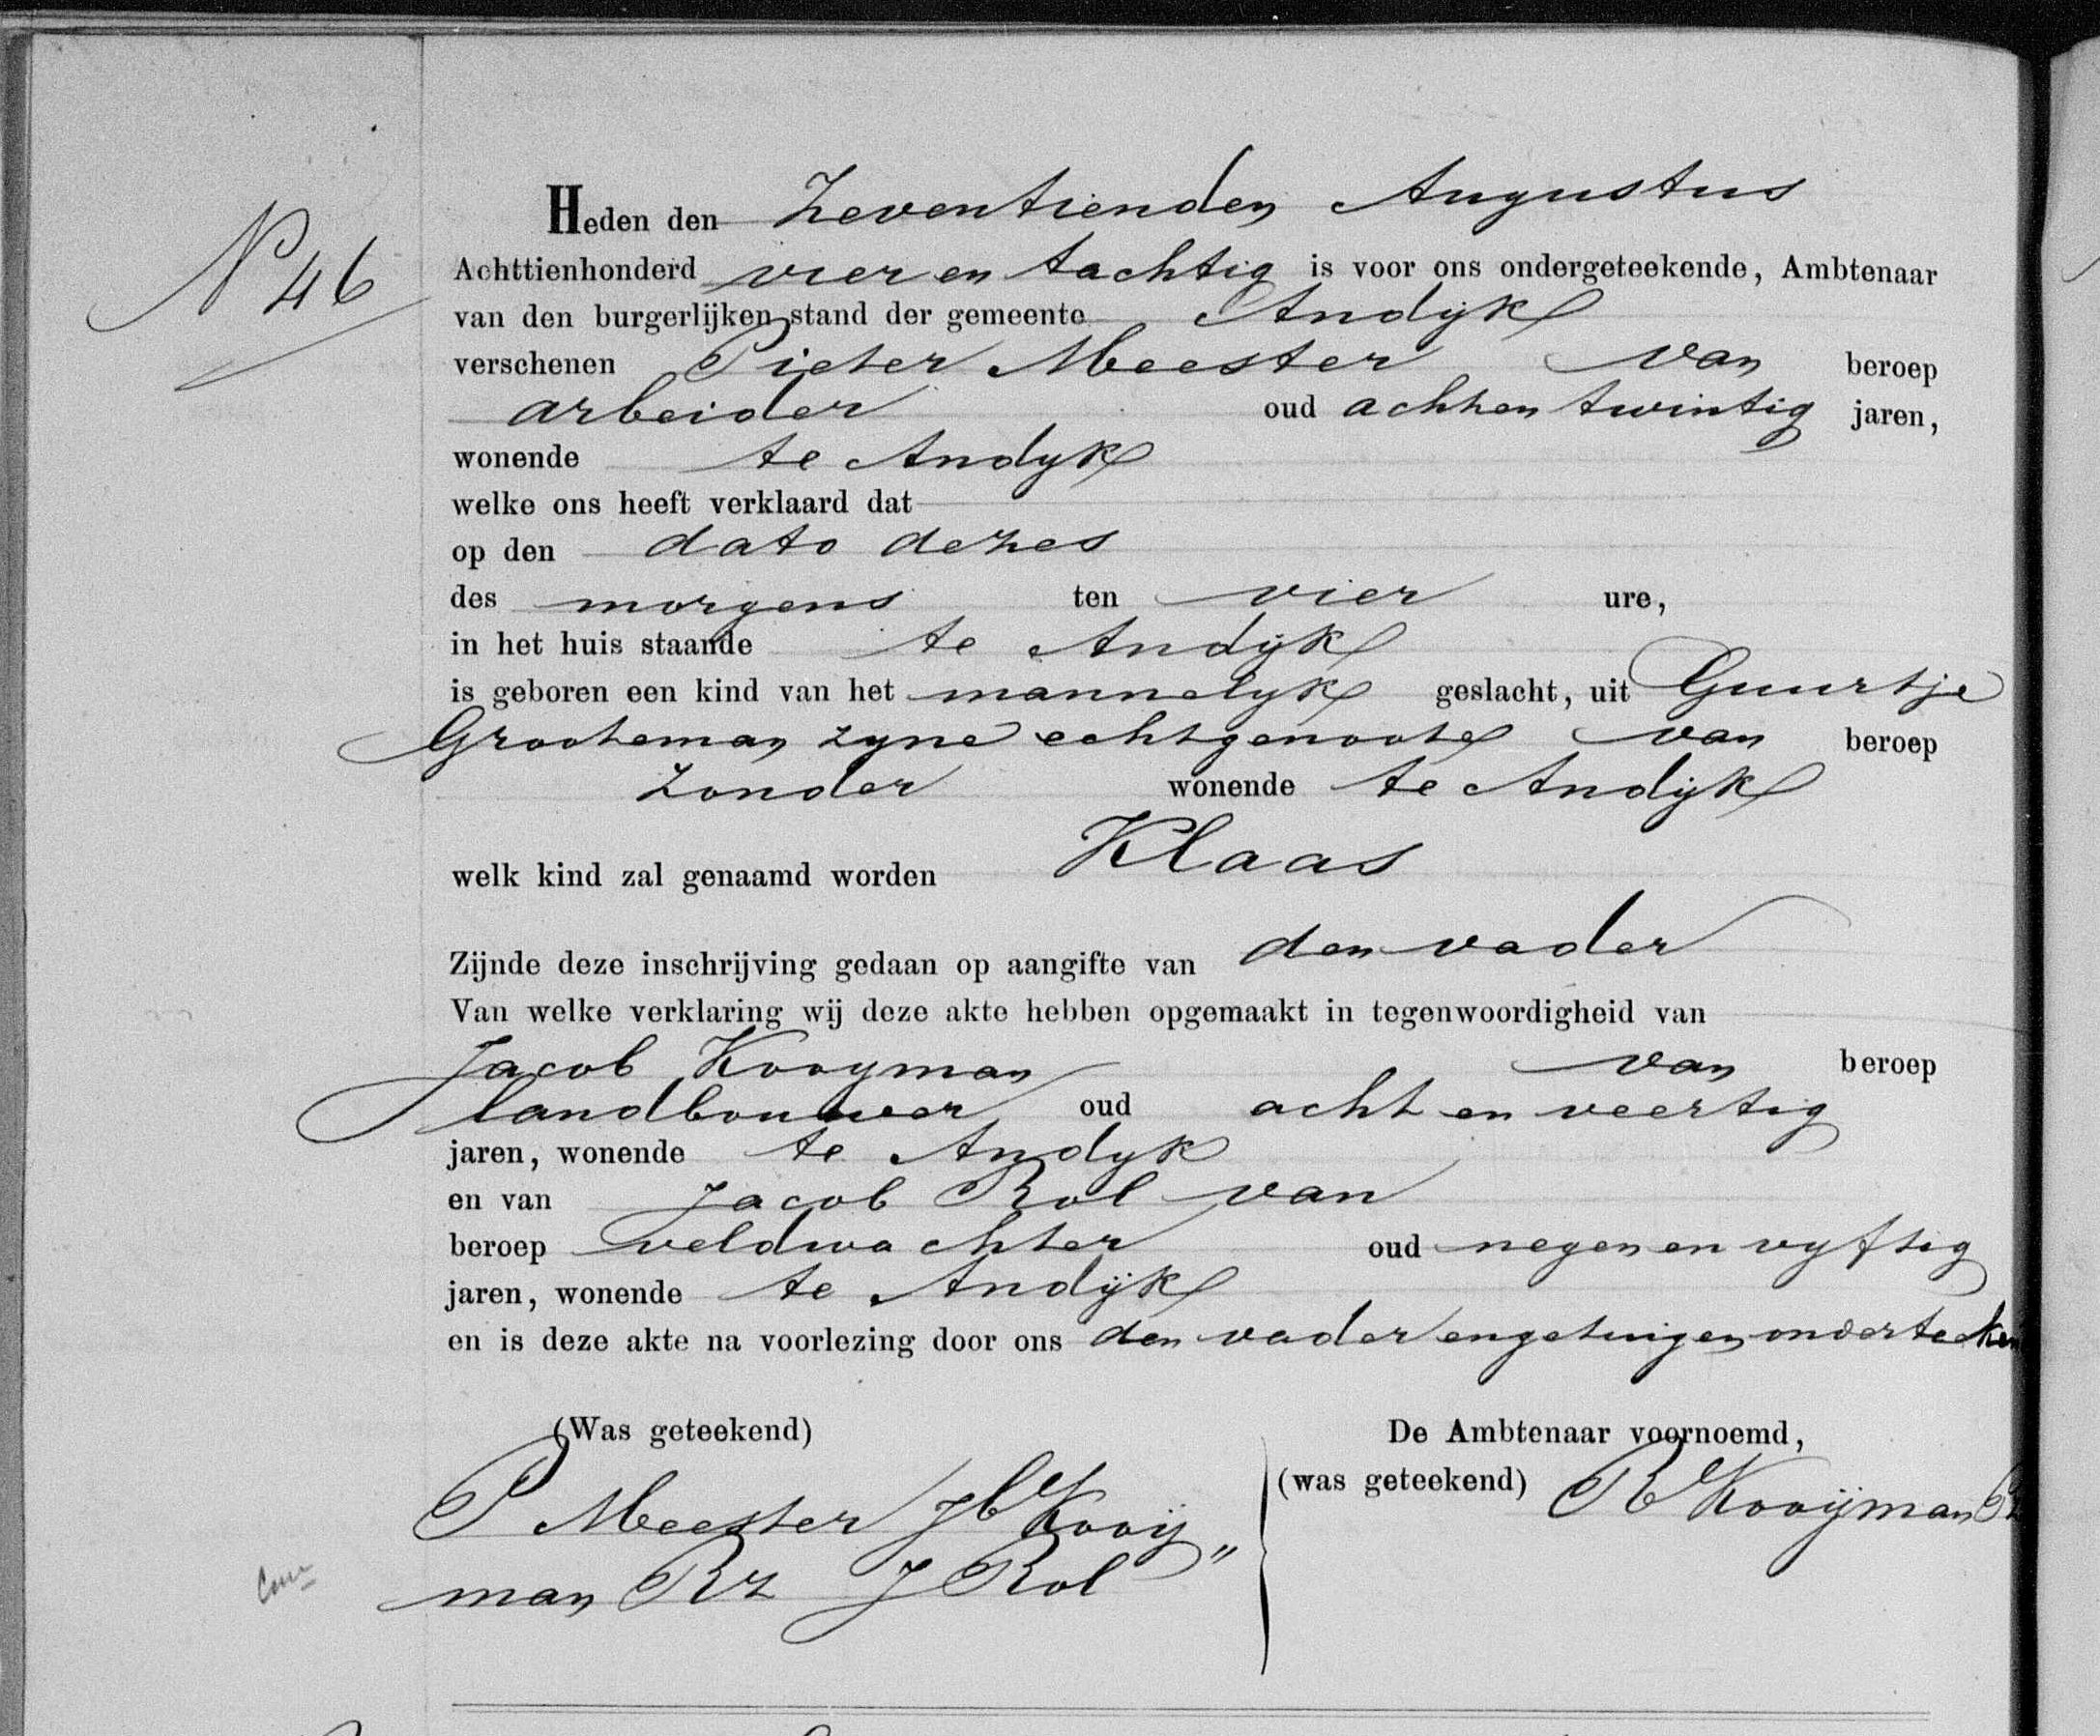 N° 46
Heden den Zeventienden Augustus
Achttienhonderd vier en tachtig is voor ons ondergeteekende, Ambtenaar
van den burgerlijken stand der gemeente Andijk
verschenen Pieter Meester van beroep
arbeider oud achten twintig jaren,
wonende te Andyk
welke ons heeft verklaard dat
op den dato dezes
des morgens ten vier ure,
in het huis staande te Andijk
is geboren een kind van het mannelyk geslacht, uit Guurtje
Grooteman zyne echtgenoote van beroep
zonder wonende te Andijk
welk kind zal genaamd worden Klaas
Zijnde deze inschrijving gedaan op aangifte van den vader
Van welke verklaring wij deze akte hebben opgemaakt in tegenwoordigheid van
Jacob Kooyman van beroep
landbouwer oud acht en veertig
jaren, wonende te Andyk
en van Jacob Rol van
beroep veldwachter oud negen en vyftig
jaren, wonende te Andijk
en is deze akte na voorlezing door ons den vader en getuigen onderteeken
(Was geteekend) De Ambtenaar voornoemd,
(was geteekend) R Kooijman
P Meester Jb Kooij"
man Rz J Rol